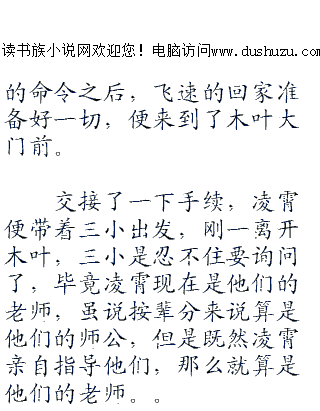 读书族小说网欢迎您！电脑访问www.dushuzu.com
的命令之后，飞速的回家准
备好一切，便来到了木叶大
门前。
交接了一下手续，凌霄
便带着三小出发，刚一离开
木叶，三小是忍不住要询问
了，毕竟凌霄现在是他们的
老师，虽说按辈分来说算是
他们的师公，但是既然凌霄
亲自指导他们，那么就算是
他们的老师。。